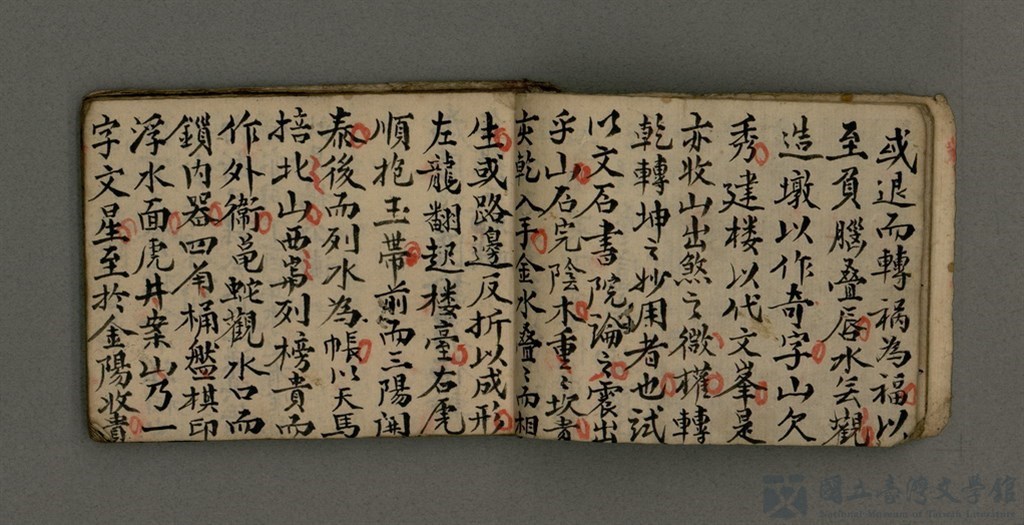 或退而轉禍為福以
至負腦叠唇水会觀
造墩以作奇字山欠
秀建楼以代文峯是
亦收山出煞之微權轉
乾轉坤之妙用者也試
以文石書院論之震出
乎山石完陰木重〻坎贵
夾乾入手金水叠〻而相
生或路邊反折以成形
左龍翻起楼臺右虎
順抱玉带前而三陽開
泰後而列水為帳以天馬
掊北山西嵩列榜貴而
作外衛黾蛇觀水口而
鎖内器四角桶盤棋印
浮水面虎井案山乃一
字文星至於金陽收書
國立臺灣文學館
National Museum of Taiwan Literature